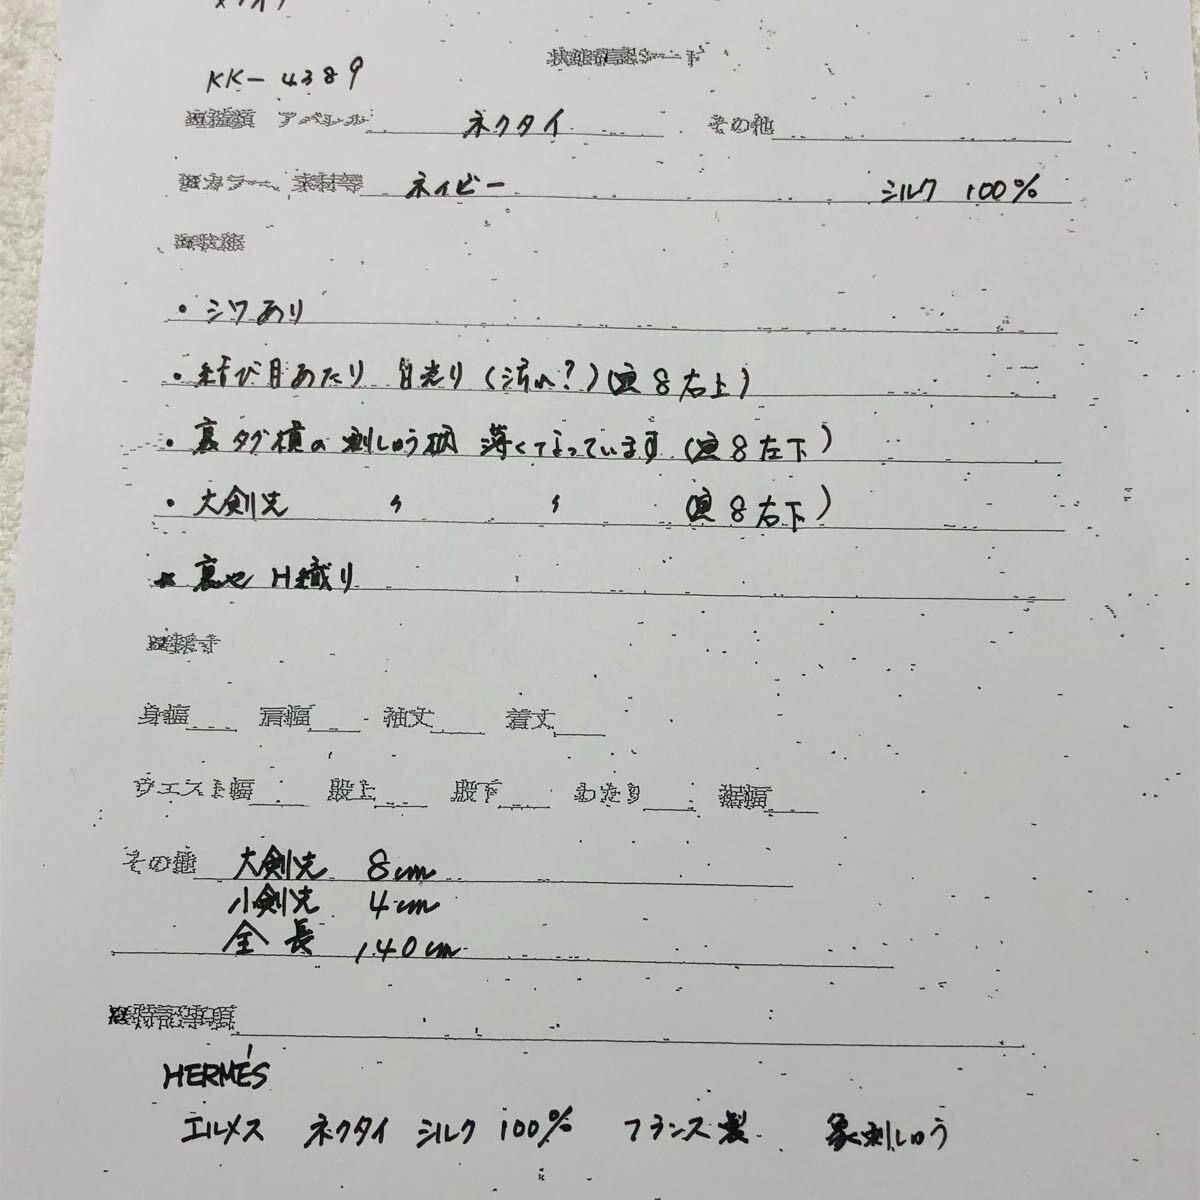 状態確認シート
KK-4389
アパレル ネクタイ その他
カラー、素材等 ネイビー シルク 100%
状態
・シワあり
・結び目あたり 目寄り(汚れ?)(画8右上)
・裏タグ横の刺しゅう柄 薄くなっています(画8左下)
・大剣先 〃 〃 (画8右下)
裏地 H織り
採寸
身幅 肩幅 袖丈 着丈
ウエスト幅 股上 股下 わたり 裾幅
その他 大剣先 8cm
小剣先 4cm
全長 140cm
特記事項
HERMÉS
エルメス ネクタイ シルク 100% フランス製 象刺しゅう